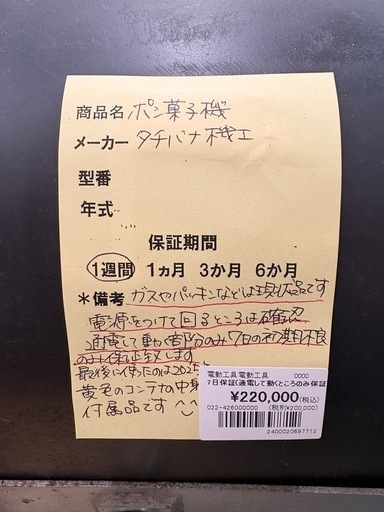 商品名 ポン菓子機
メーカー タチバナ機工
型番
年式
保証期間
1週間 1ヵ月 3か月 6か月
*備考 ガスやパッキンなどは現状品です
電源をつけて回るところは確認
通電して動く部分のみ7日の初期不良
のみ保証致します
最後に使ったのは2025
黄色のコンテナの中身
付属品です
電動工具電動工具 0000
7日保証(通電して動くところのみ保証
¥220,000(税込)
022-426000000 (税別¥200,000)
2400020697712